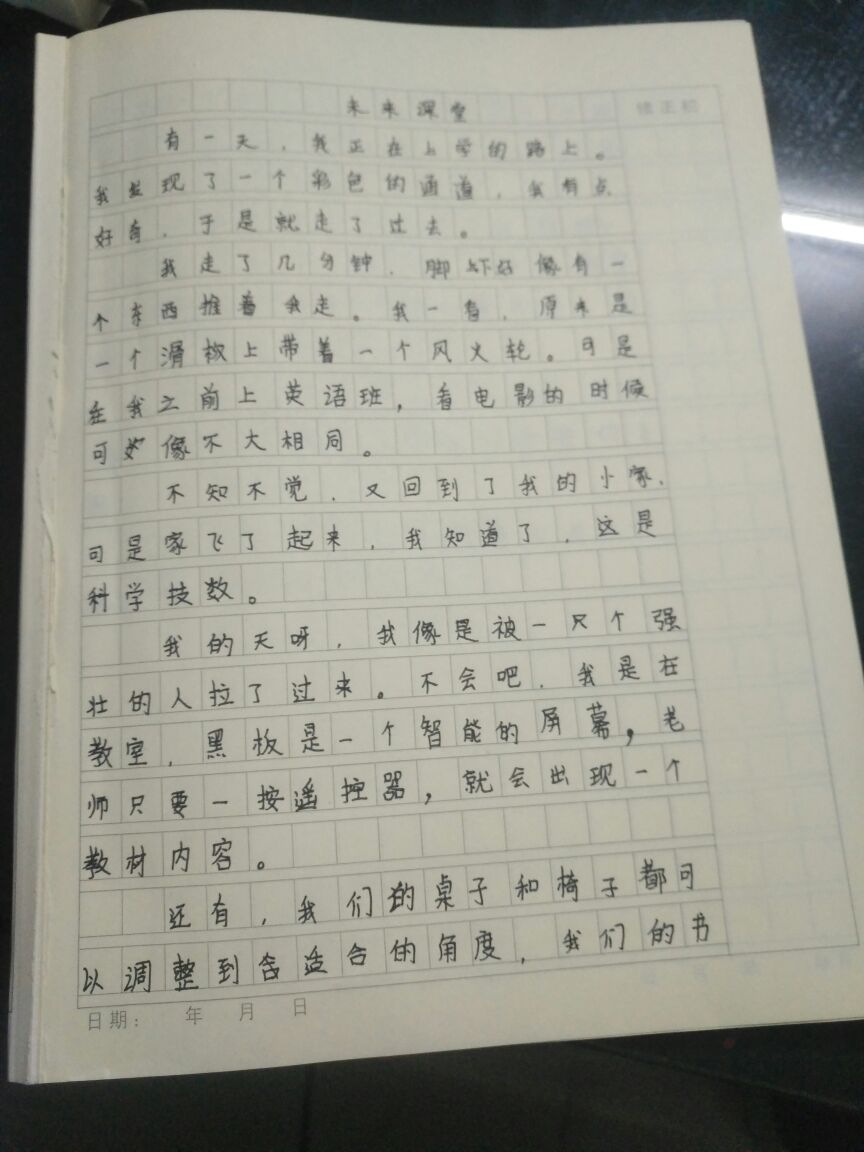 未来课堂
修正栏
有一天，我正在上学的路上。
我发现了一个彩色的通道，我有点
好奇，于是就走了过去。
我走了几分钟，脚下好像有一
个东西推着我走。我一看，原来是
一个滑板上带着一个风火轮。可是
在我之前上英语班，看电影的时候
可好像不大相同。
不知不觉，又回到了我的小家，
可是家飞了起来，我知道了，这是
科学技数。
我的天呀，我像是被一只个强
壮的人拉了过来。不会吧，我是在
教室，黑板是一个智能的屏幕，老
师只要一按遥控器，就会出现一个
教材内容。
还有，我们的桌子和椅子都可
以调整到合适合的角度，我们的书
日期： 年 月 日